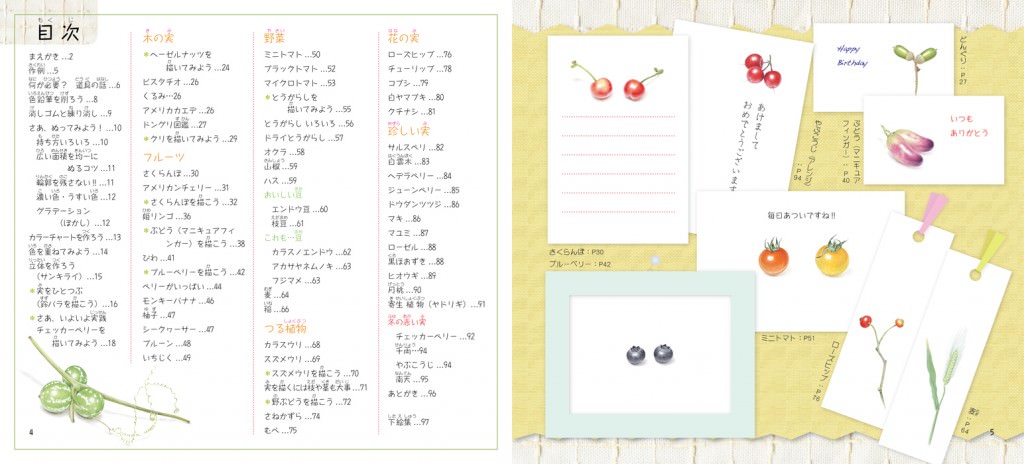 もくじ
目次
まえがき…2
作例…5
何が必要？　道具の話…6
色鉛筆を削ろう…8
消しゴムと練り消し…9
さあ、ぬってみよう！…10
持ち方いろいろ…10
広い面積を均一に
ぬるコツ…11
輪郭を残さない!!…11
濃い色・うすい色…12
グラデーション
（ぼかし）…12
カラーチャートを作ろう…13
色を重ねてみよう…14
立体を作ろう
（サンキライ）…15
＊実をひとつぶ
（野バラを描こう）…16
＊さあ、いよいよ実践
チェッカーベリーを
描いてみよう…18
木の実
＊ヘーゼルナッツを
描いてみよう…24
ピスタチオ…26
くるみ…26
アメリカカエデ…26
ドングリ図鑑…27
＊クリを描いてみよう…29
フルーツ
さくらんぼ…30
アメリカンチェリー…31
＊さくらんぼを描こう…32
姫リンゴ…36
＊ぶどう（マニキュアフィ
ンガー）を描こう…38
びわ…41
＊ブルーベリーを描こう…42
ベリーがいっぱい…44
モンキーバナナ…46
柚子…47
シークヮーサー…47
プルーン…48
いちじく…49
野菜
ミニトマト…50
ブラックトマト…52
マイクロトマト…53
＊とうがらしを
描いてみよう…55
とうがらし いろいろ…56
ドライとうがらし…57
オクラ…58
山椒…59
ハス…59
おいしい豆
エンドウ豆…60
枝豆…61
これも…豆
カラスノエンドウ…62
アカササゲムノキ…63
フジマメ…63
麦…64
稲…66
つる植物
カラスウリ…68
スズメウリ…69
＊スズメウリを描こう…70
実を描くには枝や茎も大事…71
＊野ぶどうを描こう…72
さねかずら…74
もべ…75
花の実
ローズヒップ…76
チューリップ…78
コブシ…79
白ヤマブキ…80
クチナシ…81
珍しい実
サルスベリ…82
白雲木…83
ヘデラベリー…84
ジューンベリー…85
ドウダンツツジ…86
マキ…86
マユミ…87
ローゼル…88
黒ほおずき…88
ヒオウギ…89
月桃…90
寄生植物（ヤドリギ）…91
冬の赤い実
チェッカーベリー…92
千両…94
やぶこうじ…94
南天…95
あとがき…96
下絵集…97
4
さくらんぼ：P30
ブルーベリー：P42
あけまして
おめでとうございます
P94
Happy
Birthday
どんぐり：P27
ぶどう（マニキュア
フィンガー）：P40
いつも
ありがとう
毎日あついですね!!
ミニトマト：P51
ローズヒップ：P76
麦：P64
5